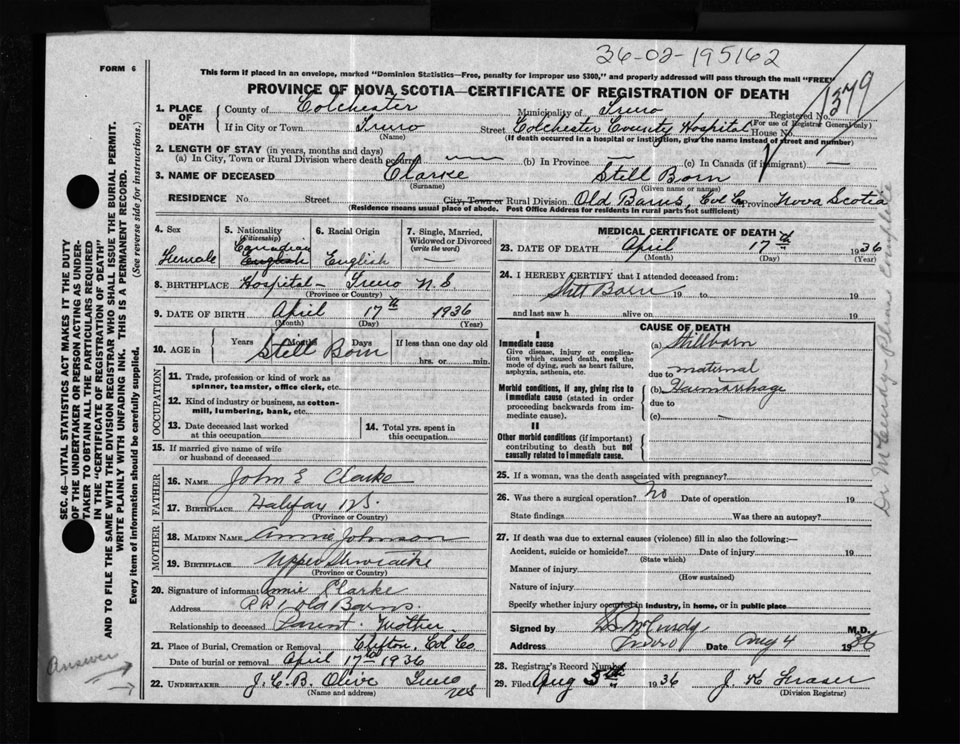 36-02-195162
FORM 6
This form if placed in an envelope, marked "Dominion Statistics—Free, penalty for improper use $300," and properly addressed will pass through the mail "FREE"
1379
PROVINCE OF NOVA SCOTIA—CERTIFICATE OF REGISTRATION OF DEATH
1. PLACE OF DEATH County of Colchester Municipality of Truro Registered No.
(For use of Registrar General only)
If in City or Town Truro Street Colchester County Hospital House No.
(Name) (If death occurred in a hospital or institution, give the name instead of street and number)
2. LENGTH OF STAY (in years, months and days)
(a) In City, Town or Rural Division where death occurred — (b) In Province — (c) In Canada (if immigrant) —
3. NAME OF DECEASED Clarke Still Born
(Surname) (Given name or names)
RESIDENCE No. Street City, Town or Rural Division Old Barns, Col Co Province Nova Scotia
(Residence means usual place of abode. Post Office Address for residents in rural parts not sufficient)
4. Sex 5. Nationality (Citizenship) 6. Racial Origin 7. Single, Married, Widowed or Divorced (write the word)
Female Canadian English English —
8. BIRTHPLACE Hospital - Truro N.S
(Province or Country)
9. DATE OF BIRTH April 17th 1936
(Month) (Day) (Year)
10. AGE in Years Months Days If less than one day old
Still Born hrs. or min.
OCCUPATION
11. Trade, profession or kind of work as spinner, teamster, office clerk, etc.
12. Kind of industry or business, as cotton-mill, lumbering, bank, etc.
13. Date deceased last worked at this occupation
14. Total yrs. spent in this occupation
15. If married give name of wife or husband of deceased
FATHER
16. NAME John E Clarke
17. BIRTHPLACE Halifax N.S.
(Province or Country)
MOTHER
18. MAIDEN NAME Annie Johnson
19. BIRTHPLACE Upper Stewiacke
(Province or Country)
20. Signature of informant Annie Clarke
Address R R 1 Old Barns.
Relationship to deceased Parent. Mother.
21. Place of Burial, Cremation or Removal Clifton. Col Co.
Date of burial or removal April 17th 1936
22. UNDERTAKER J. C. B. Olive Truro
NS
(Name and address)
MEDICAL CERTIFICATE OF DEATH
23. DATE OF DEATH April 17th 1936
(Month) (Day) (Year)
24. I HEREBY CERTIFY that I attended deceased from:
Still Born 19 to 19
and last saw h alive on 19
CAUSE OF DEATH
I
Immediate cause
Give disease, injury or complication which caused death, not the mode of dying, such as heart failure, asphyxia, asthenia, etc.
(a) Stillborn
due to maternal
Morbid conditions, if any, giving rise to immediate cause (stated in order proceeding backwards from immediate cause).
(b) Haemorrhage
due to
(c) —
II
Other morbid conditions (if important) contributing to death but not causally related to immediate cause.
25. If a woman, was the death associated with pregnancy?
26. Was there a surgical operation? No Date of operation 19
State findings Was there an autopsy?
27. If death was due to external causes (violence) fill in also the following:—
Accident, suicide or homicide? Date of injury 19
(State which)
Manner of injury
(How sustained)
Nature of injury
Specify whether injury occurred in industry, in home, or in public place
Signed by D S McCurdy M.D.
Address Truro Date Aug 4 1936
28. Registrar's Record Number
29. Filed Aug 5th 1936 J. H. Fraser
(Division Registrar)
SEC. 46—VITAL STATISTICS ACT MAKES IT THE DUTY OF THE UNDERTAKER OR PERSON ACTING AS UNDERTAKER TO OBTAIN ALL THE PARTICULARS REQUIRED IN THE "CERTIFICATE OF REGISTRATION OF DEATH"
AND TO FILE THE SAME WITH THE DIVISION REGISTRAR WHO SHALL ISSUE THE BURIAL PERMIT.
WRITE PLAINLY WITH UNFADING INK. THIS IS A PERMANENT RECORD.
Every item of information should be carefully supplied. (See reverse side for instructions.)
Answer
Dr McCurdy Please Complete